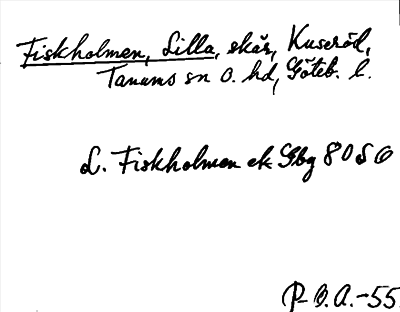 Fiskholmen, Lilla, skär, Kuseröd,
Tanums sn o. hd, Göteb. l.
L. Fiskholmen ek Gbg 80 S O
P B.A.-55